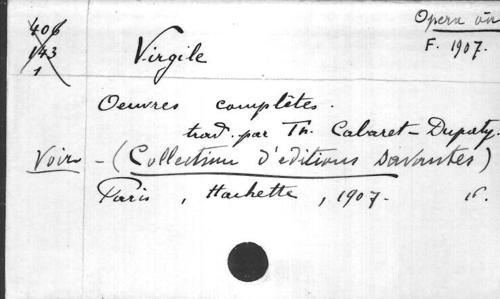 406
143
1
Opera
F. 1907.
Virgile
Oeuvres complètes.
trad. par Th. Cabaret-Dupaty.
Voir - (Collection d'éditions savantes)
Paris, Hachette, 1907. 16.